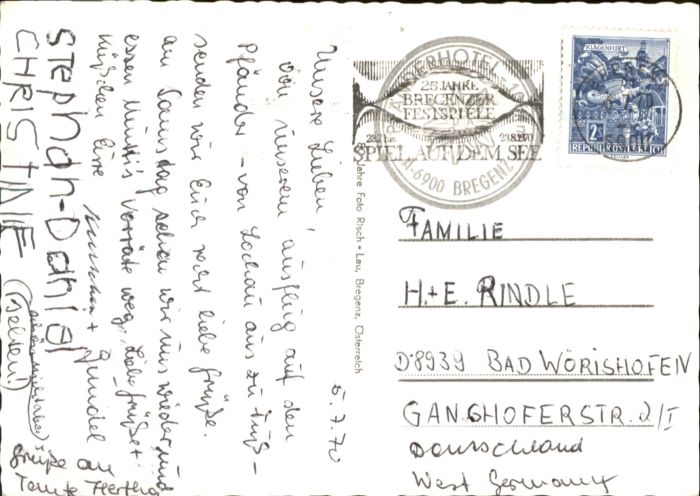 5.7.70
Unsere Lieben,
den unserem Ausflug auf den
Pfänder - von Lochau aus zu Fuß -
senden wir Euch recht liebe Grüße.
am Samstag sehen wir uns wieder und
essen Vorräte weg. Liebe Grüße +
Küßchen Eure
Gundel
Stephan-Daniel
CHRISTINE
(selber!)
Grüße an
Tante Hertha
25 JAHRE
BREGENZER
FESTSPIELE
23.8.1970
SPIEL AUF DEM SEE
A-6900 BREGENZ
KLAGENFURT
2S
REPUBLIK ÖSTERREICH
Jahre Foto Risch-Lau, Bregenz, Österreich
FAMILIE
H.+E. RINDLE
D-8939 BAD WÖRISHOFEN
GANGHOFERSTR. 2/I
Deutschland
West Germany